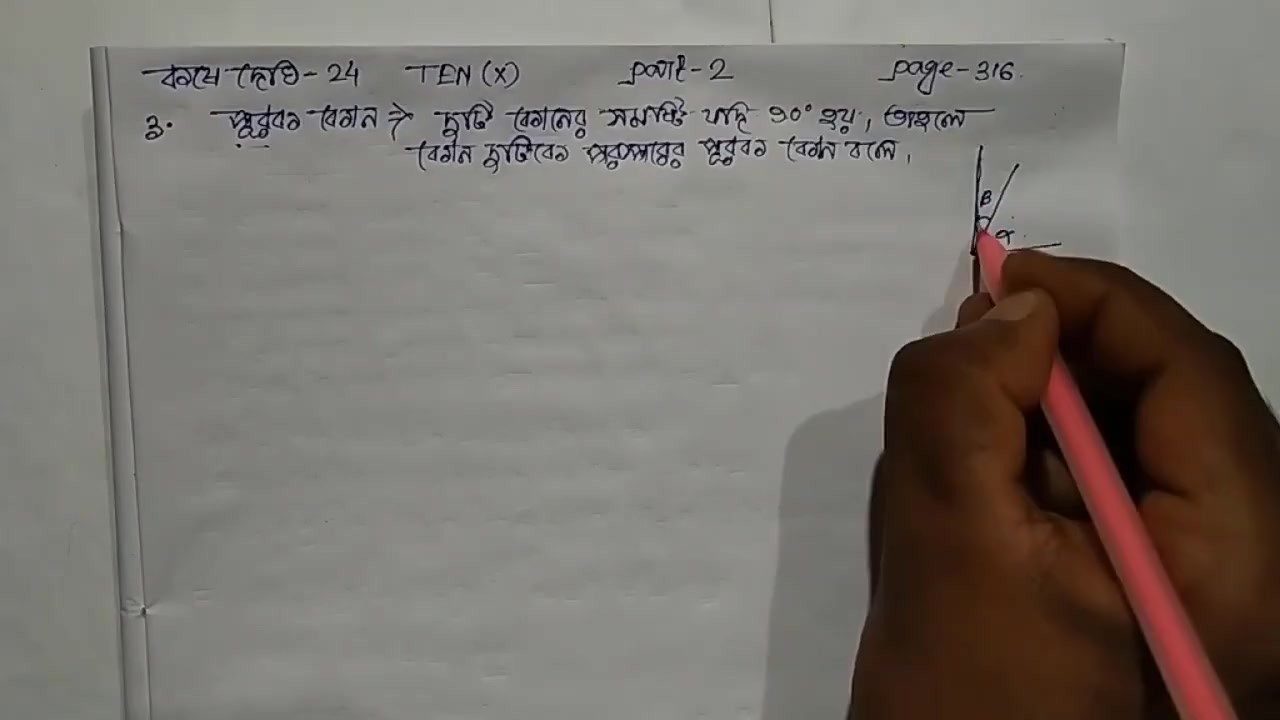 কষে দেখি - 24 TEN (X) part - 2 page - 316.
3. পূরক কোণ → দুটি কোণের সমষ্টি যদি 90° হয়, তাহলে
কোণ দুটিকে পরস্পরের পূরক কোণ বলে।
B
α